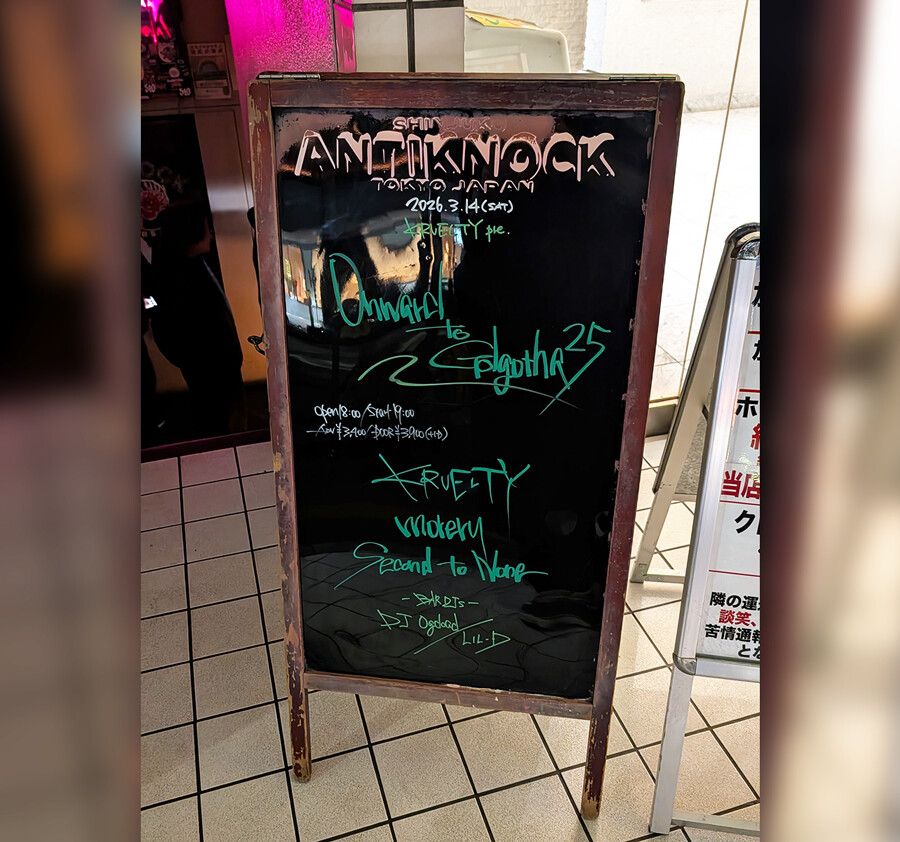 SHINJUKU
ANTIKNOCK
TOKYO JAPAN
2026.3.14(SAT)
KRUELTY pre.
Onward
to
Golgotha 25
open18:00/Start19:00
Adv¥3,400/DOOR¥3,900(+1D)
KRUELTY
Second to None
-BAR DJs-
DJ Ogdoad/LIL-D
ホ
当店
ク
隣の運
談笑、
苦情通報
とな